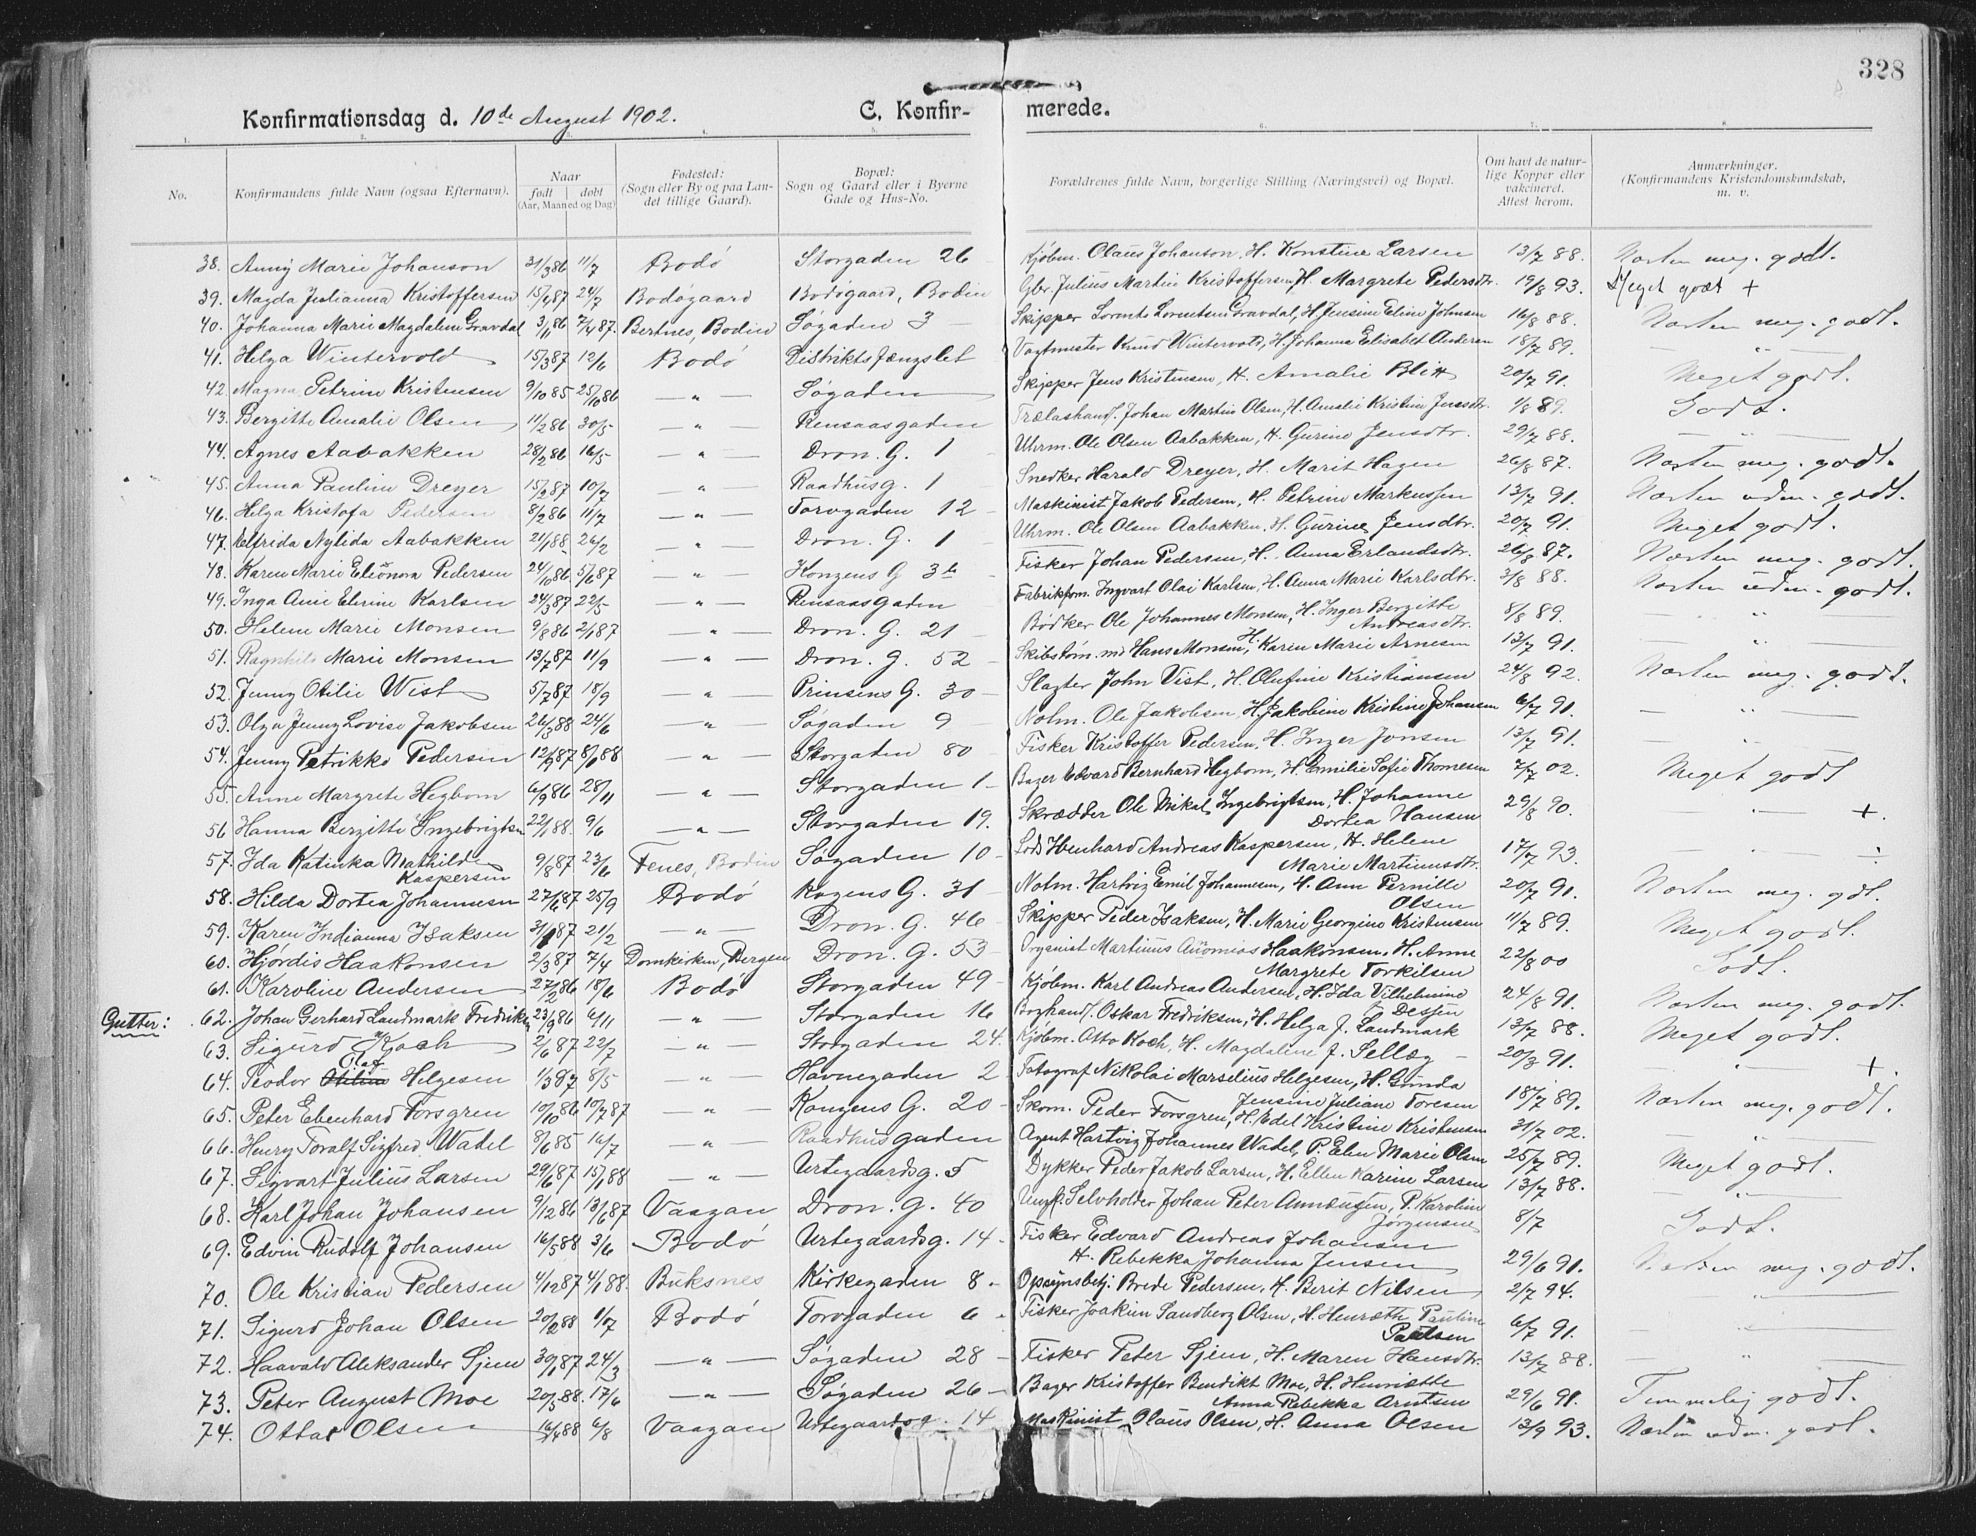 328
Konfirmationsdag d. 10de August 1902. C. Konfir- merede.
1. 2. 3. 4. 5. 6. 7. 8.
No. Konfirmandens fulde Navn (ogsaa Efternavn). Naar født døbt (Aar, Maaned og Dag) Fødested: (Sogn eller By og paa Landet tillige Gaard). Bopæl: Sogn og Gaard eller i Byerne Gade og Hus-No. Forældrenes fulde Navn, borgerlige Stilling (Næringsvei) og Bopæl. Om havt de naturlige Kopper eller vakcineret. Attest herom. Anmærkninger. (Konfirmandens Kristendomskundskab, m. v.
38. Anny Marie Johanson 31/3 86 11/7 Bodö Storgaden 26 Kjöbm. Olaus Johanson, H. Konstine Larsen 13/7 88. Næsten meg. godt.
39. Magda Julianna Kristoffersen 15/4 87 24/7 Bodögaard Bodögaard, Bodin Gbr. Julius Martin Kristoffersen, H. Margrete Pedersdtr. 19/8 93. Meget godt +
40. Johanna Marie Magdalene Gravdal 3/11 86 7/4 87. Bertnes, Bodin Søgaden 3 Skipper Lorents Lorentsen Gravdal, H. Jensine Eline Johnsen 16/8 88. Næsten meg. godt.
41. Helga Wintervold 15/3 87 12/6 Bodö Distriktsfængslet Vagtmester Knud Wintervold, H. Johanna Elisabet Andersen 18/7 89. — " —
42. Magna Petrine Kristensen 9/10 85 25/10 86 — " — Søgaden Skipper Jens Kristensen, H. Amalie Blix 20/7 91. Meget godt.
43. Bergitte Amalie Olsen 11/2 86 30/5 — " — Rensaasgaden Trælasthandl. Johan Martin Olsen, H. Amalie Kristine Jensdtr. 1/8 89. Godt.
44. Agnes Aabakken 28/2 86 16/5 — " — Dron. G. 1 Uhrm. Ole Olsen Aabakken, H. Gurine Jensdtr. 29/7 88. — " —
45. Anna Pauline Dreyer 15/2 87 10/7 — " — Raadhusg. 1 Snedker Harald Dreyer, H. Marit Hagen 26/8 87. Næsten meg. godt.
46. Helga Kristofa Pedersen 8/2 86 11/7 — " — Torvgaden 12 Maskinist Jakob Pedersen, H. Petrine Markussen 13/7 91. Næsten udm. godt.
47. Elfrida Nylida Aabakken 21/1 88 26/2 — " — Dron. G. 1 Uhrm. Ole Olsen Aabakken, H. Gurine Jensdtr. 20/7 91. Meget godt.
48. Karen Marie Eleonora Pedersen 24/10 86 5/6 87 — " — Kongens G 3b Fisker Johan Pedersen, H. Anna Erlandsdtr. 26/8 87. Næsten meg. godt.
49. Inga Anie Elerine Karlsen 24/3 87 22/5 — " — Rensaasgaden Fabrikfom. Ingvart Olai Karlsen, H. Anna Marie Karlsdtr. 3/8 88. Næsten udm. godt.
50. Helene Marie Monsen 9/8 86 2/1 87 — " — Dron. G. 21 Bødker Ole Johannes Monsen, H. Inger Bergitte Andreasdtr. 8/8 89. — " —
51. Ragnhild Marie Monsen 13/7 87 11/9 — " — Dron. G. 52 Skibstøm. md Hans Monsen, H. Karen Marie Arnesen 13/7 91. — " —
52. Jenny Otilie Wist 5/7 87 18/9 — " — Prinsens G. 30 Slagter John Vist, H. Olufine Kristiansen 24/8 92. Næsten meg. godt.
53. Olga Jenny Lovise Jakobsen 26/3 88 24/6 " — Søgaden 9 Notm. Ole Jakobsen, H. Jakobine Kristine Johansen 6/7 91. — " —
54. Jenny Petrikke Pedersen 12/9 87 8/1 88 — " — Storgaden 80 Fisker Kristoffer Pedersen, H. Inger Jonsen 13/7 91. — " —
55. Anne Margrete Hegbom 6/9 86 28/11 — " — Storgaden 1 Bager Edvard Bernhard Hegbom, H. Emilie Sofie Thomesen 7/7 02. Meget godt
56 Hanna Bergitte Ingebrigtsen 22/1 88. 9/6 — " — Storgaden 19. Skrædder Ole Mikal Ingebrigtsen, H. Johanne Dortea Hansen 29/8 90. — " — +.
57. Ida Katinka Mathilde Kaspersen 9/8 87 23/6 Fenes, Bodin Søgaden 10 Lods Ibenhard Andreas Kaspersen, H. Helene Marie Martinusdtr. 17/7 93. — " —
58. Hilda Dortea Johannesen 27/6 87 25/9 Bodö Kogens G. 31 Notm. Hartvig Emil Johannesen, H. Ann Pernille Olsen 20/7 91. Næsten meg. gdt.
59. Karen Indianna Isaksen 31/1 87 21/2 — " — Dron. G. 46 Skipper Peder Isaksen, H. Marie Georgine Kristensen 11/7 89. Meget godt.
60. Hjördis Haakonsen 2/3 87 7/4 Domkirken, Bergen Dron. G. 53 Organist Martinus Haakonsen, H. Anne Margrete Torkilsen 22/8 00 Godt.
61. Karoline Andersen 27/2 86 18/6 Bodö Storgaden 49 Kjöbm. Karl Andreas Andersen, H. Ida Vilhelmine Dessen 24/8 91. Næsten meg. godt.
Gutter: 62. Johan Gerhard Landmark Fredriksen 23/9 86 6/11 — " — Storgaden 16 Boghandl. Oskar Fredriksen, H. Helga f. Landmark 13/7 88. Meget godt.
63. Sigurd Koch 2/6 87 22/7 — " — Storgaden 24. Kjöbm. Otto Koch, H. Magdalene f. Selleg 20/8 91. — " — +.
64. Teodor Olaf Helgesen 1/3 87 8/5 — " — Havnegaden 2 Fotograf Nikolai Marselius Helgesen, H. Gunda Jensine Juliane Toresen 18/7 89. Næsten meg. godt.
65. Peter Ebenhard Forsgren 10/10 86 10/7 87 " — Kongens G. 20 Skom. Peder Forsgren, H. Edel Kristine Kristensen 31/7 02.
66. Henry Toralf Sigfred Wadel 8/6 85 16/7 — " — Raadhusgaden Agent Hartvig Johannes Wadel, P. Elen Marie Olsen 25/7 89. — " —
67. Sigvart Julius Larsen 29/6 87 15/1 88 — " — Urtegaardsg. 5 Dykker Peder Jakob Larsen, H. Ellen Karine Larsen 13/7 88. Meget godt.
68. Karl Johan Johansen 9/12 86 13/6 87 Vaagan Dron. G. 40 Selvholder Johan Peter Amundsen, P. Karoline Jørgensen 8/7 — " —
69. Edvin Rudolf Johansen 16/5 88 3/6 Bodö Urtegaardsg. 14 Fisker Edvard Andreas Johansen H. Rebekka Johanna Jensen 29/6 91. Godt.
70. Ole Kristian Pedersen 4/12 87 4/1 88. Buksnes Kirkegaden 8. Opsynsbetj. Brede Pedersen, H. Berit Nilsen 2/7 94. Næsten meg. godt.
71. Sigurd Johan Olsen 20/2 88 1/7 Bodö Torvgaden 6 Fisker Joakim Sandberg Olsen, H. Henrætte Pauline Paulsen 6/7 91. — " —
72. Haavald Aleksander Sjem 30/1 87 24/3 — " — Søgaden 28 Fisker Peter Sjem, H. Maren Hansdtr. 13/7 88. — " —
73. Peter August Moe 20/5 88. 17/6 — " — Søgaden 26 Bager Kristoffer Bendikt Moe, H. Henriette Anna Rebekka Arntsen 29/6 91. Temmelig godt.
74. Ottar Olsen 16/4 88 6/8 Vaagan Urtegaardsg. 14 Maskinist Olaus Olsen, H. Anna Olsen 13/9 93. Næsten udm. godt.